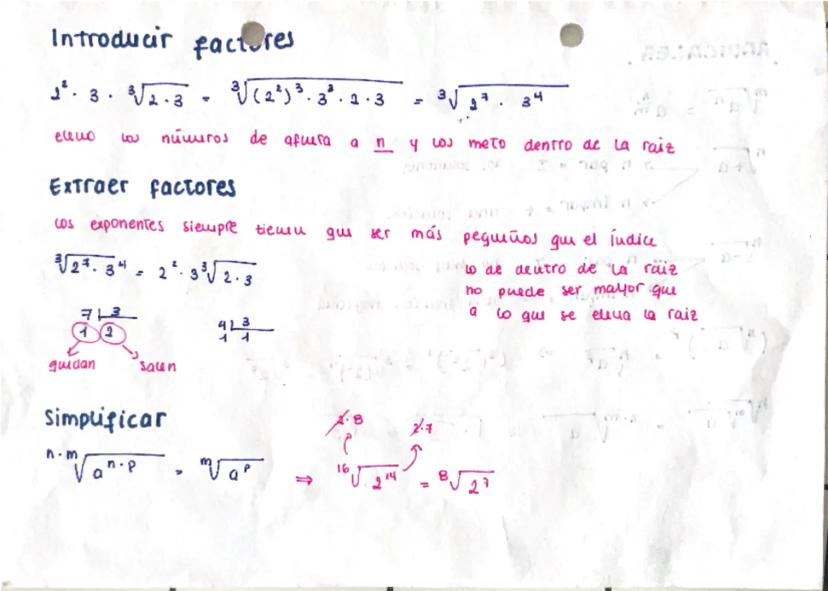 Introducir factores
2² · 3 · ³√2·3 = ³√(2²)³ · 3³ · 2 · 3 = ³√2⁷ · 3⁴
elevo los números de afuera a n y los meto dentro de la raiz
Extraer factores
los exponentes siempre tienen que ser más pequeños que el índice
³√2⁷ · 3⁴ = 2² · 3 ³√2 · 3
lo de dentro de la raiz
no puede ser mayor que
a lo que se eleva la raiz
7 3
1 2
4 3
1 1
quedan salen
Simplificar
2·8 2·7
ⁿ·ᵐ√aⁿ·ᵖ = ᵐ√aᵖ ⇒ ¹⁶√2¹⁴ = ⁸√2⁷